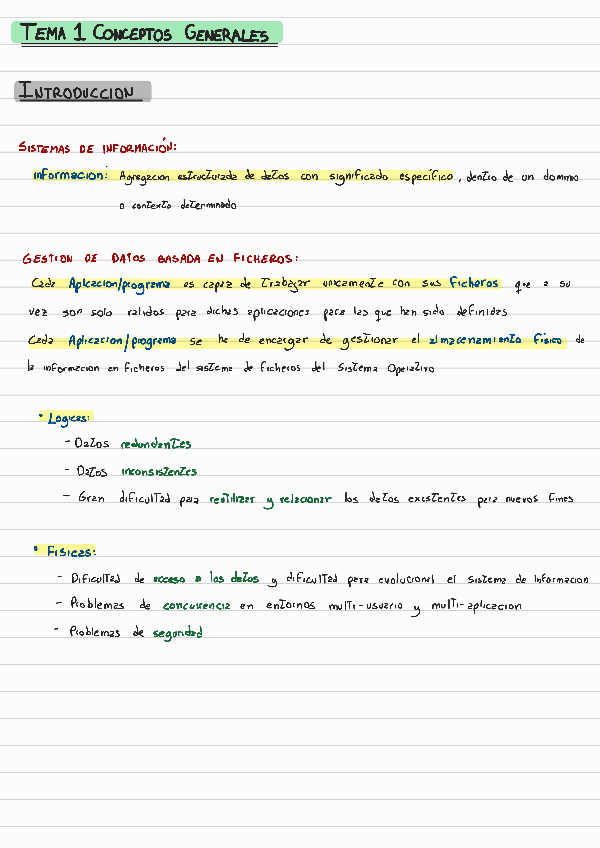 TEMA 1 CONCEPTOS GENERALES
INTRODUCCION
SISTEMAS DE INFORMACIÓN:
informacion: Agregacion estructurada de datos con significado específico, dentro de un dominio
o contexto determinado
GESTION DE DATOS BASADA EN FICHEROS:
Cada Aplcacion/programa es capaz de Trabajar unicamente con sus ficheros que a su
vez son solo validos para dichas aplicaciones para las que han sido definidas
Cada Aplicacion/programa se ha de encargar de gestionar el almacenamiento físico de
la informacion en ficheros del sisteme de ficheros del Sistema Operativo
• Logicas:
- Datos redundentes
- Datos inconsistentes
- Gran dificultad para reutilizar y relacionar los datos existentes para nuevos fines
• Fisicas:
- Dificultad de acceso a los datos y dificultad para evolucionar el sistema de informacion
- Problemas de concurrencia en entornos multi-usuario y multi-aplicacion
- Problemas de seguridad